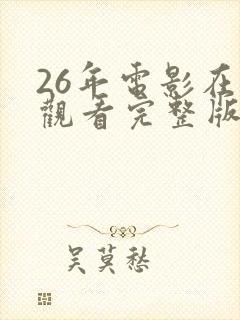 26年電影在
觀看完整版
吴莫愁